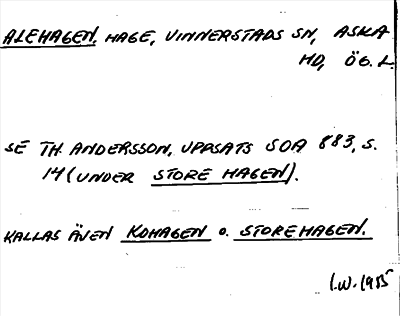 ALEHAGEN, HAGE, VINNERSTADS SN, ASKA
HD, ÖG. L.
SE TH. ANDERSSON, UPPSATS SOA 883, S.
14 (UNDER STORE HAGEN).
KALLAS ÄVEN KOHAGEN o. STOREHAGEN.
I.W. 1985